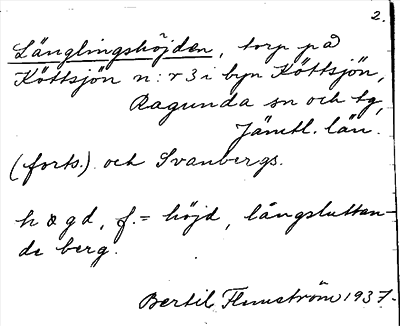 2.
Länglingshöjden, torp på
Köttsjön n:r 3 i byn Köttsjön,
Ragunda sn och tg,
Jämtl. län.
(forts.) och Svanbergs.
gd, f. = höjd, långsluttan-
de berg.
Bertil Flemström 1937.